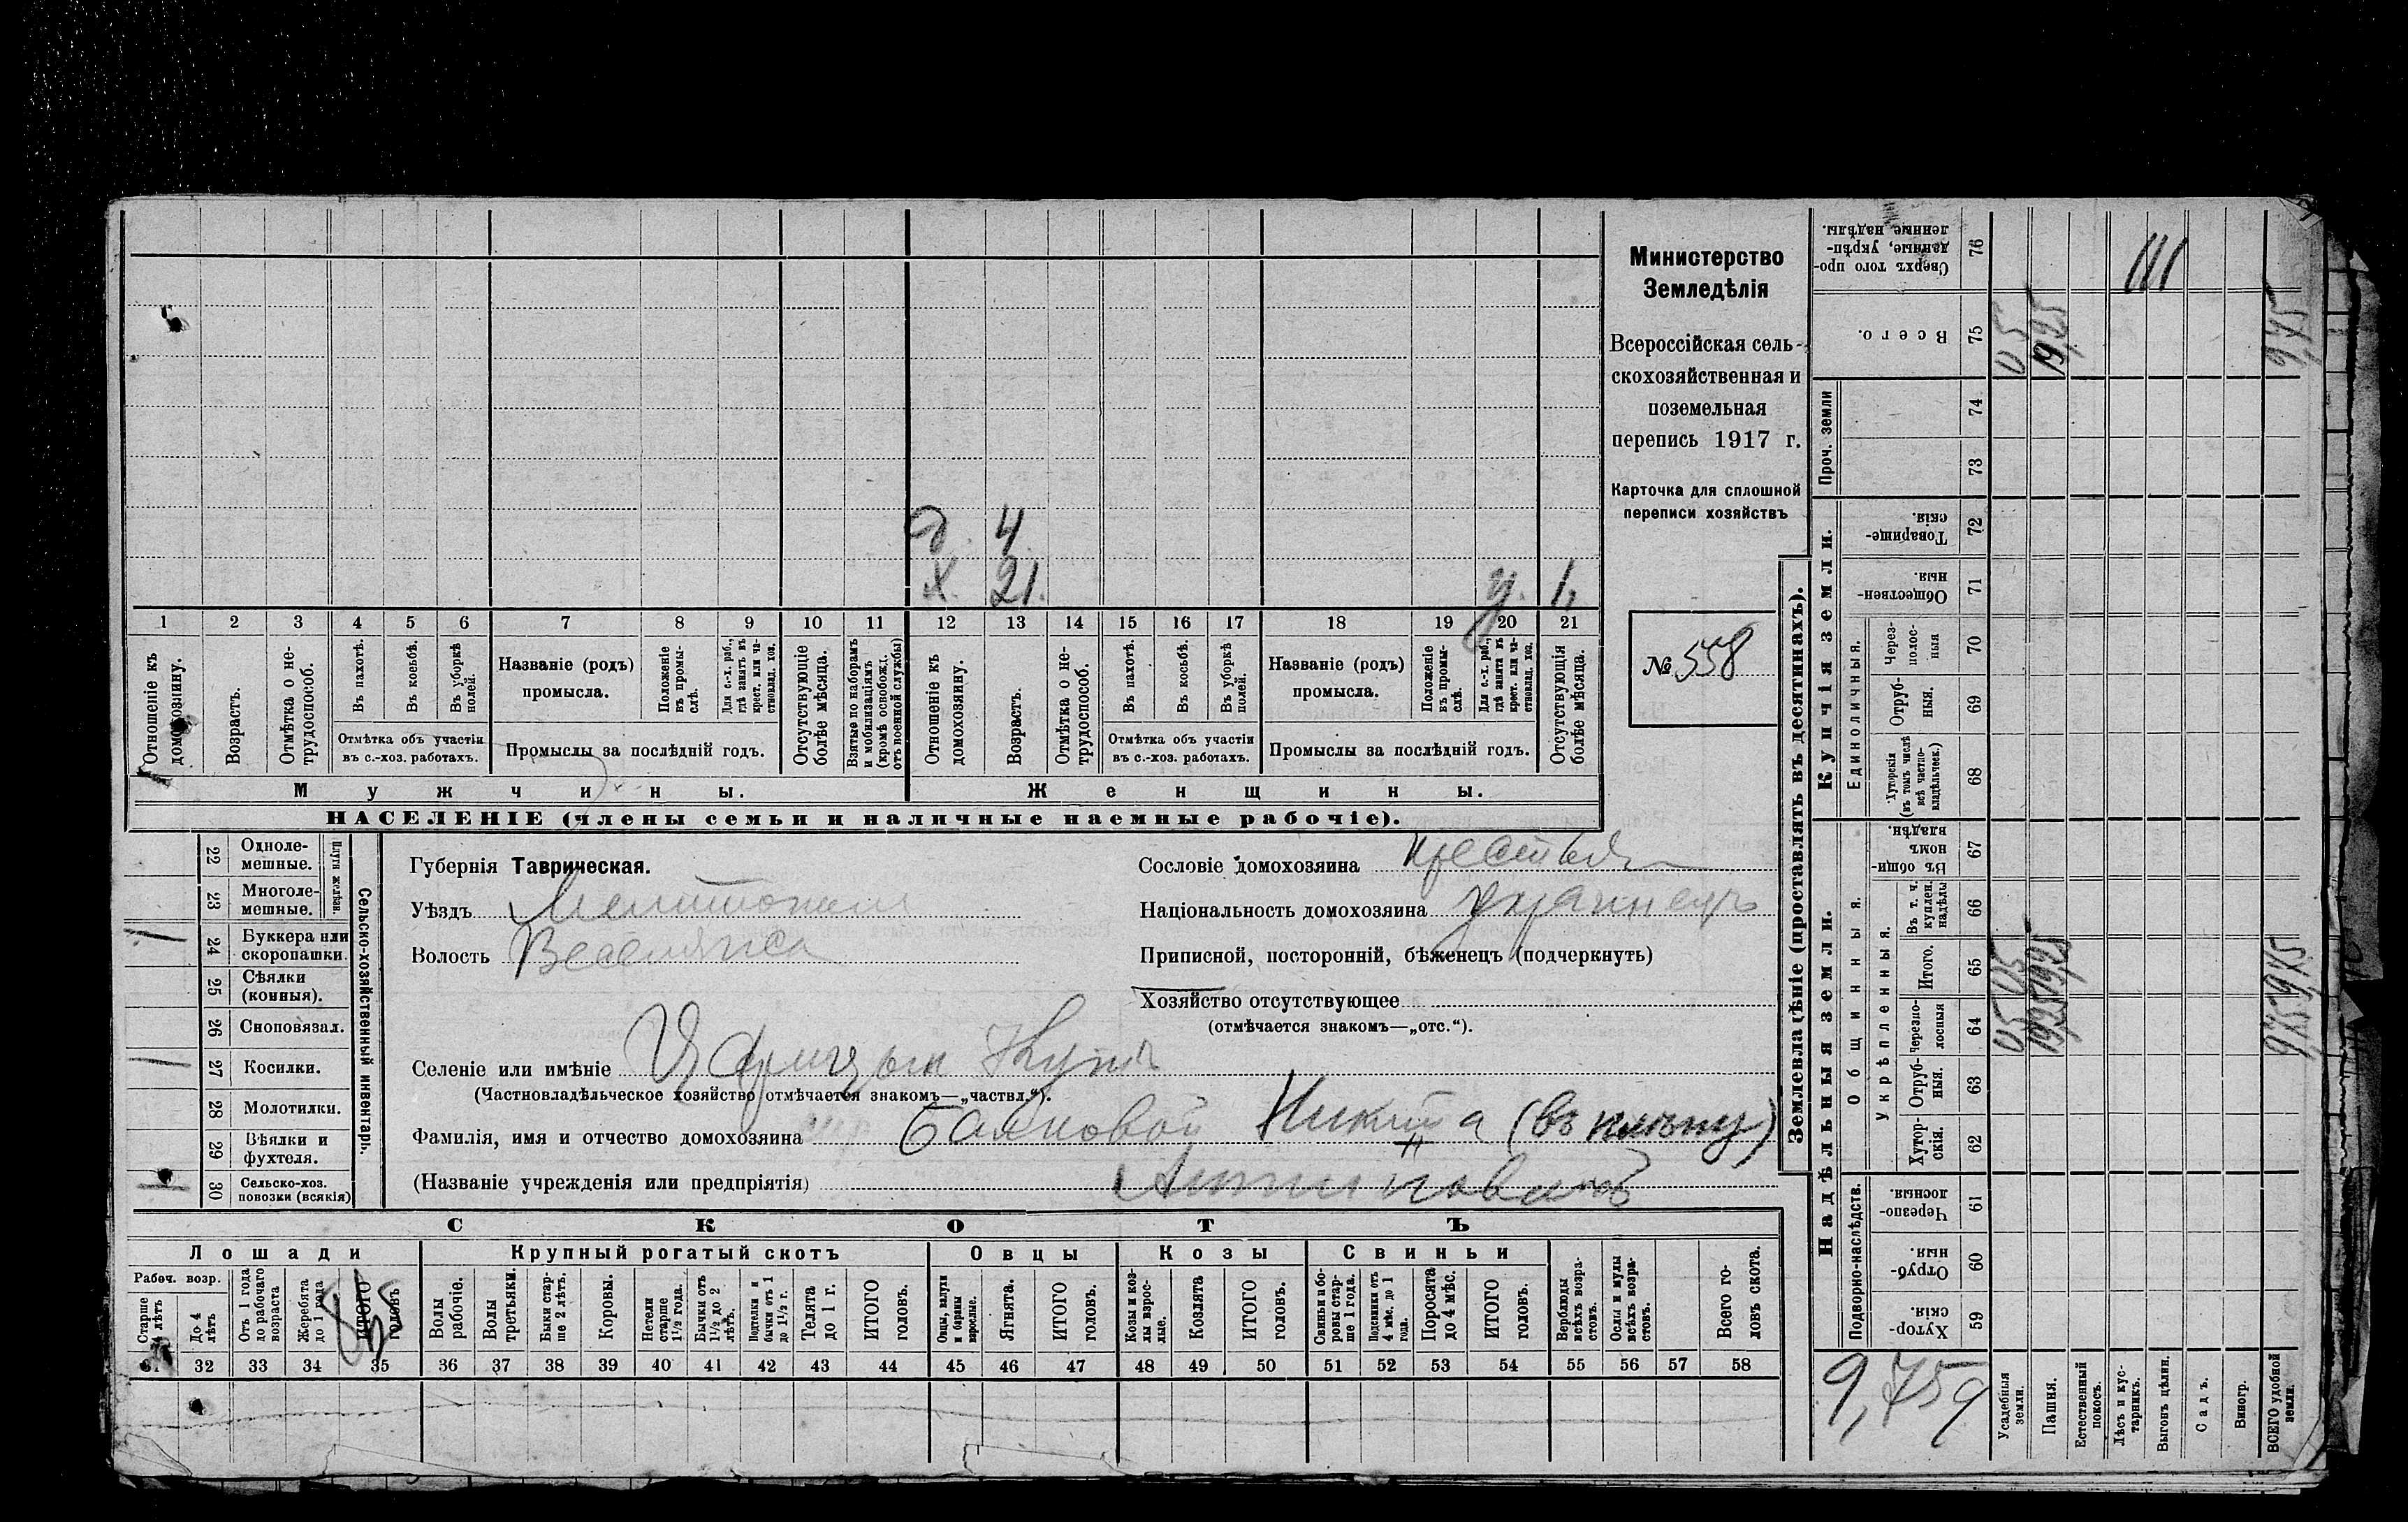 Министерство
Земледѣлія
Всероссійская сель-
скохозяйственная и
поземельная
перепись 1917 г.
Карточка для сплошной
переписи хозяйствъ
№ 558
д. 4
х. 21. у. 1,
1 2 3 4 5 6 7 8 9 10 11 12 13 14 15 16 17 18 19 20 21
Отношеніе къ домохозяину.
Возрастъ.
Отмѣтка о не-трудоспособ.
Въ пахотѣ.
Въ косьбѣ.
Въ уборкѣ полей.
Отмѣтка объ участіи въ с.-хоз. работахъ.
Названіе (родъ) промысла.
Положеніе въ промы-слѣ.
Для с.-х. раб., гдѣ занятъ въ крест. или ча-стновлад. хоз.
Промыслы за послѣдній годъ.
Отсутствующіе болѣе мѣсяца.
Взятые по наборамъ и мобилизаціямъ (кромѣ освобожд. отъ военной службы)
Отношеніе къ домохозяину.
Возрастъ.
Отмѣтка о не-трудоспособ.
Въ пахотѣ.
Въ косьбѣ.
Въ уборкѣ полей.
Отмѣтка объ участіи въ с.-хоз. работахъ.
Названіе (родъ) промысла.
Положеніе въ промы-слѣ.
Для с.-х. раб., гдѣ занята въ крест. или ча-стновлад. хоз.
Промыслы за послѣдній годъ.
Отсутствующія болѣе мѣсяца.
Мужчины. Женщины.
НАСЕЛЕНІЕ (члены семьи и наличные наемные рабочіе).
22 Одноле-мешные.
23 Многоле-мешные.
Плуги желѣзн.
24 Буккера или скоропашки.
25 Сѣялки (конныя).
26 Сноповязал.
27 Косилки.
28 Молотилки.
29 Вѣялки и фухтеля.
30 Сельско-хоз. повозки (всякія)
Сельско-хозяйственный инвентарь.
Губернія Таврическая.
Уѣздъ Мелитопол
Волость Веселянска
Селеніе или имѣніе Царицын Кутъ
(Частновладѣльческое хозяйство отмѣчается знакомъ—„частвл.“).
Фамилія, имя и отчество домохозяина Балковой Никита (въ плѣну)
(Названіе учрежденія или предпріятія) Антиповичъ
Сословіе домохозяина крестьян
Національность домохозяина украинецъ
Приписной, посторонній, бѣженецъ (подчеркнуть)
Хозяйство отсутствующее
(отмѣчается знакомъ—„отс.“).
СКОТЪ
Лошади Крупный рогатый скотъ Овцы Козы Свиньи
Рабоч. возр.
Старше 4 лѣтъ
До 4 лѣтъ
Отъ 1 года до рабочаго возраста
Жеребята до 1 года
ИТОГО головъ
Волы рабочіе.
Волы третьяки.
Быки стар-ше 2 лѣтъ.
Коровы.
Нетели старше 1½ года.
Бычки отъ 1½ до 2 лѣтъ.
Подтелки и бычки отъ 1 до 1½ г.
Телята до 1 г.
ИТОГО головъ.
Овцы, валухи и бараны взрослые.
Ягнята.
ИТОГО головъ.
Козы и коз-лы взрос-лые.
Козлята
ИТОГО головъ.
Свиньи и бо-ровы стар-ше 1 года.
Подсвинки отъ 4 мѣс. до 1 года.
Поросята до 4 мѣс.
ИТОГО головъ.
Верблюды всѣхъ возра-стовъ.
Ослы и мулы всѣхъ возра-стовъ.
Всего го-ловъ скота.
31 32 33 34 35 36 37 38 39 40 41 42 43 44 45 46 47 48 49 50 51 52 53 54 55 56 57 58
Землевладѣніе (проставлять въ десятинахъ).
Надѣльныя земли.
Купчія земли.
Проч. земли
Подворно-наслѣдств.
Общинныя.
Укрѣпленныя.
Единоличныя.
59 Хутор-скія.
60 Отруб-ныя.
61 Черезпо-лосныя.
62 Хутор-скія.
63 Отруб-ныя.
64 Черезпо-лосныя
65 Итого.
66 Въ т. ч. куплен. надѣлы
67 Въ общин-номъ владѣн.
68 Хуторскія (въ томъ числѣ всѣ частно-владѣльческ.)
69 Отруб-ныя.
70 Через-полос-ныя
71 Обществен-ныя.
72 Товарище-скія.
73
74
75 Всего.
76 Сверхъ того про-данные, укрѣп-ленные надѣлы.
9,75
Усадебныя земли.
Пашня.
Естественный покосъ.
Лѣсъ и кус-тарникъ.
Выгонъ цѣлин.
Садъ.
Виногр.
ВСЕГО удобной земли.